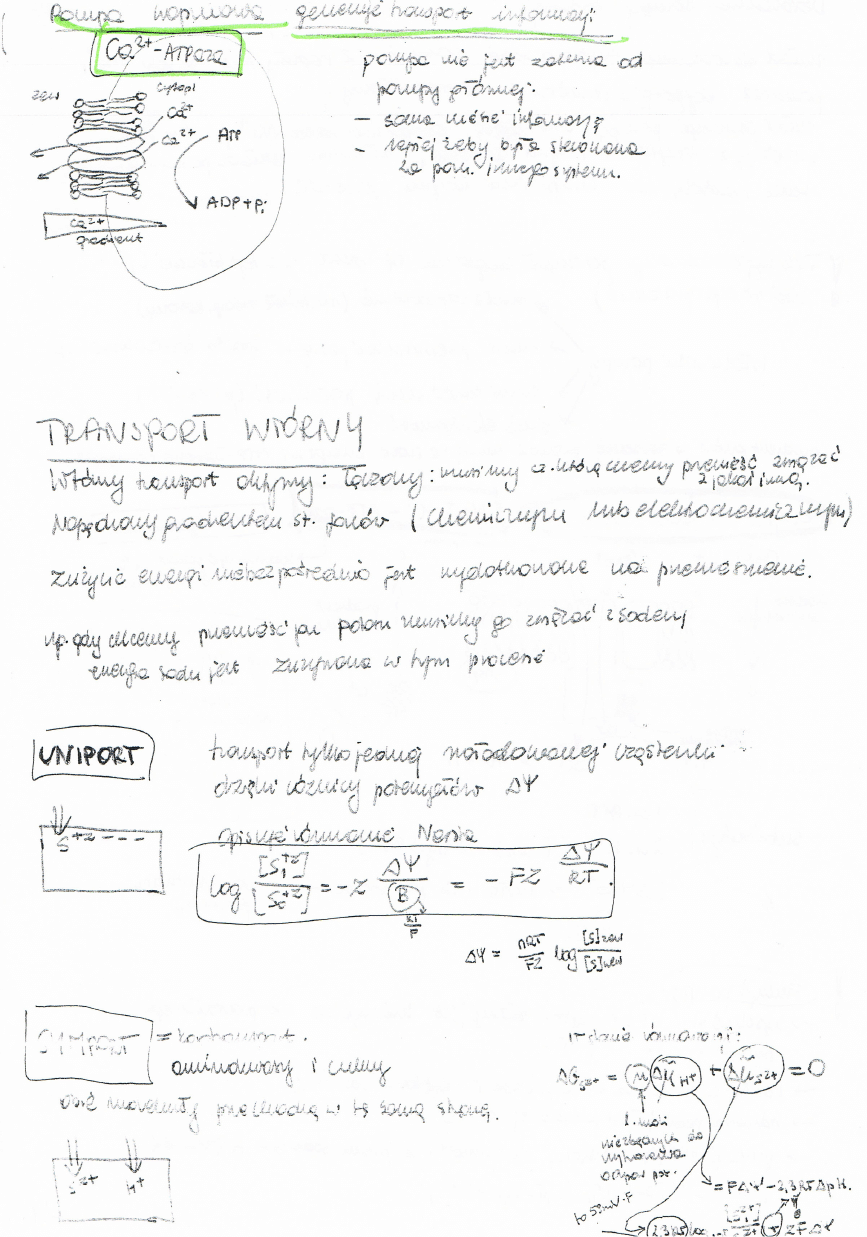 Pompa wapniowa generuje transport informacji:
Ca²⁺-ATPaza
pompa nie jest zależna od
pompy głównej.
– sama nieść informację
– lepiej żeby była sterowana
za pom. innego systemu.
zew
cytopl
Ca²⁺
Ca²⁺
ATP
ADP + Pi
Ca²⁺
gradient
TRANSPORT WTÓRNY
Wtórny transport aktywny: łączony: musimy cz. którą chcemy przenieść związać
z jakąś inną.
Napędzany gradientem st. jonów (chemicznym lub elektrochemicznym)
zużycie energii niebezpośrednio jest wydatkowane na przenoszenie.
np. gdy chcemy przenieść jon potasu musimy go związać z sodem,
energia sodu jest zużywana w tym procesie
UNIPORT
transport tylko jednej naładowanej cząsteczki
dzięki różnicy potencjałów ΔΨ
S⁺ᶻ - - -
opisuje równanie Nersta
log [S₁⁺ᶻ]/[S₀⁺ᶻ] = -z ΔΨ/B = - FZ ΔΨ/RT.
RT/F
ΔΨ = nRT/FZ log [S]zew/[S]wew
SYMPORT = kontransport.
aminokwasy i cukry
obie molekuły przechodzą w tę samą stronę.
S²⁺ H⁺
w stanie równowagi:
ΔG = n Δμ̃H⁺ + Δμ̃S²⁺ = 0
l. moli
niezbędnych do
= FΔΨ - 2,3RTΔpH.
to 59mV·F
2,3RT log ZFΔΨ